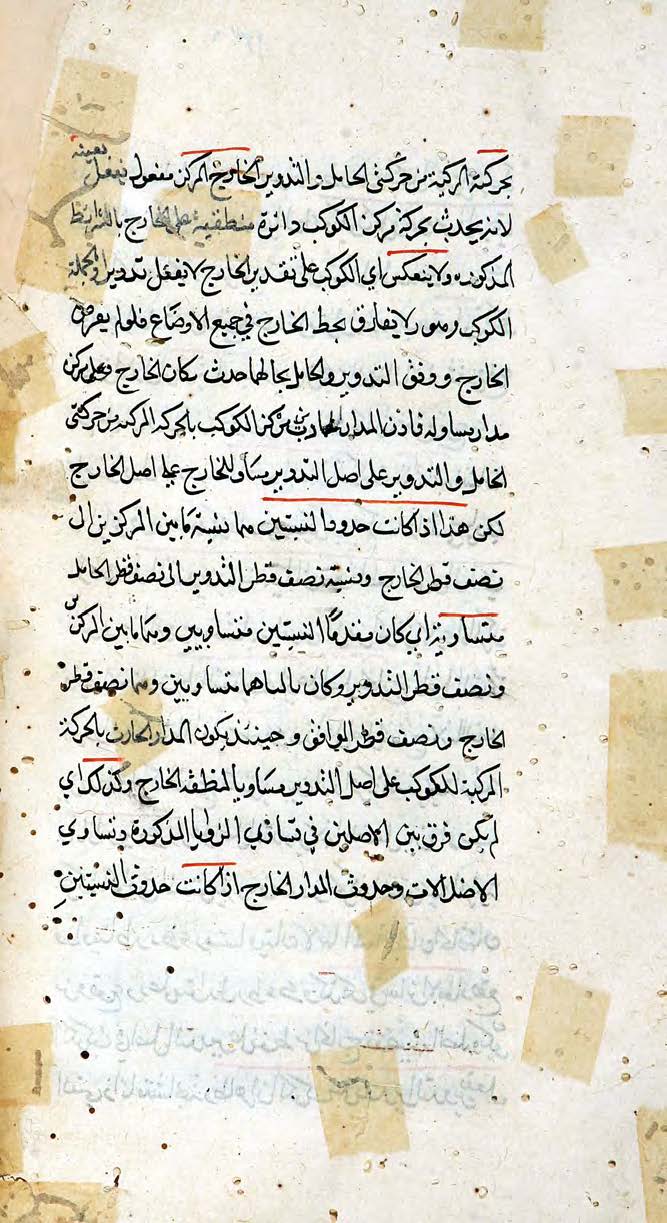 بحركته المركبة من حركتى الحامل و التدوير الخارج المركز مفعول تفعل بعينه
لانه يحدث بحركة مركز الكوكب دائرة منطقية على الخارج بالشرائط
المذكوره ولا ينعكس اي الكوكب على تقدير الخارج لا يفعل تدويرا والجملة
الكوكب لا يفارق محيط الخارج في جميع الاوضاع فلو لم يفرض
الخارج و وفق التدوير والحامل بحالهما حدث مكان الخارج وعلى مركزه
مدار يساوله فاذن المدار الحادث من مركز الكوكب بالحركه المركبه من حركتى
الحامل و التدوير على اصل التدوير مساو للخارج على اصل الخارج
لكن هذا اذا كانت حدود النسبتين هما نسبة ما بين المركزين الى
نصف قطر الخارج ونسبة نصف قطر التدوير الى نصف قطر الحامل
متساوية اي كان مقدما النسبتين متساويين وهما ما بين المركزين
ونصف قطر التدوير وكان تالياهما متساويين وهما نصف قطر
الخارج ونصف قطر الموافق وحينئذ يكون المدار الحادث بالحركة
المركبة للكوكب على اصل التدوير مساويا لمنطقه الخارج وكذلك اي
لم يكن فرق بين الاصلين في تساوي الزوايا المذكورة وتساوي
الاختلافات وحدوث المدار الخارج اذا كانت حدود النسبتين